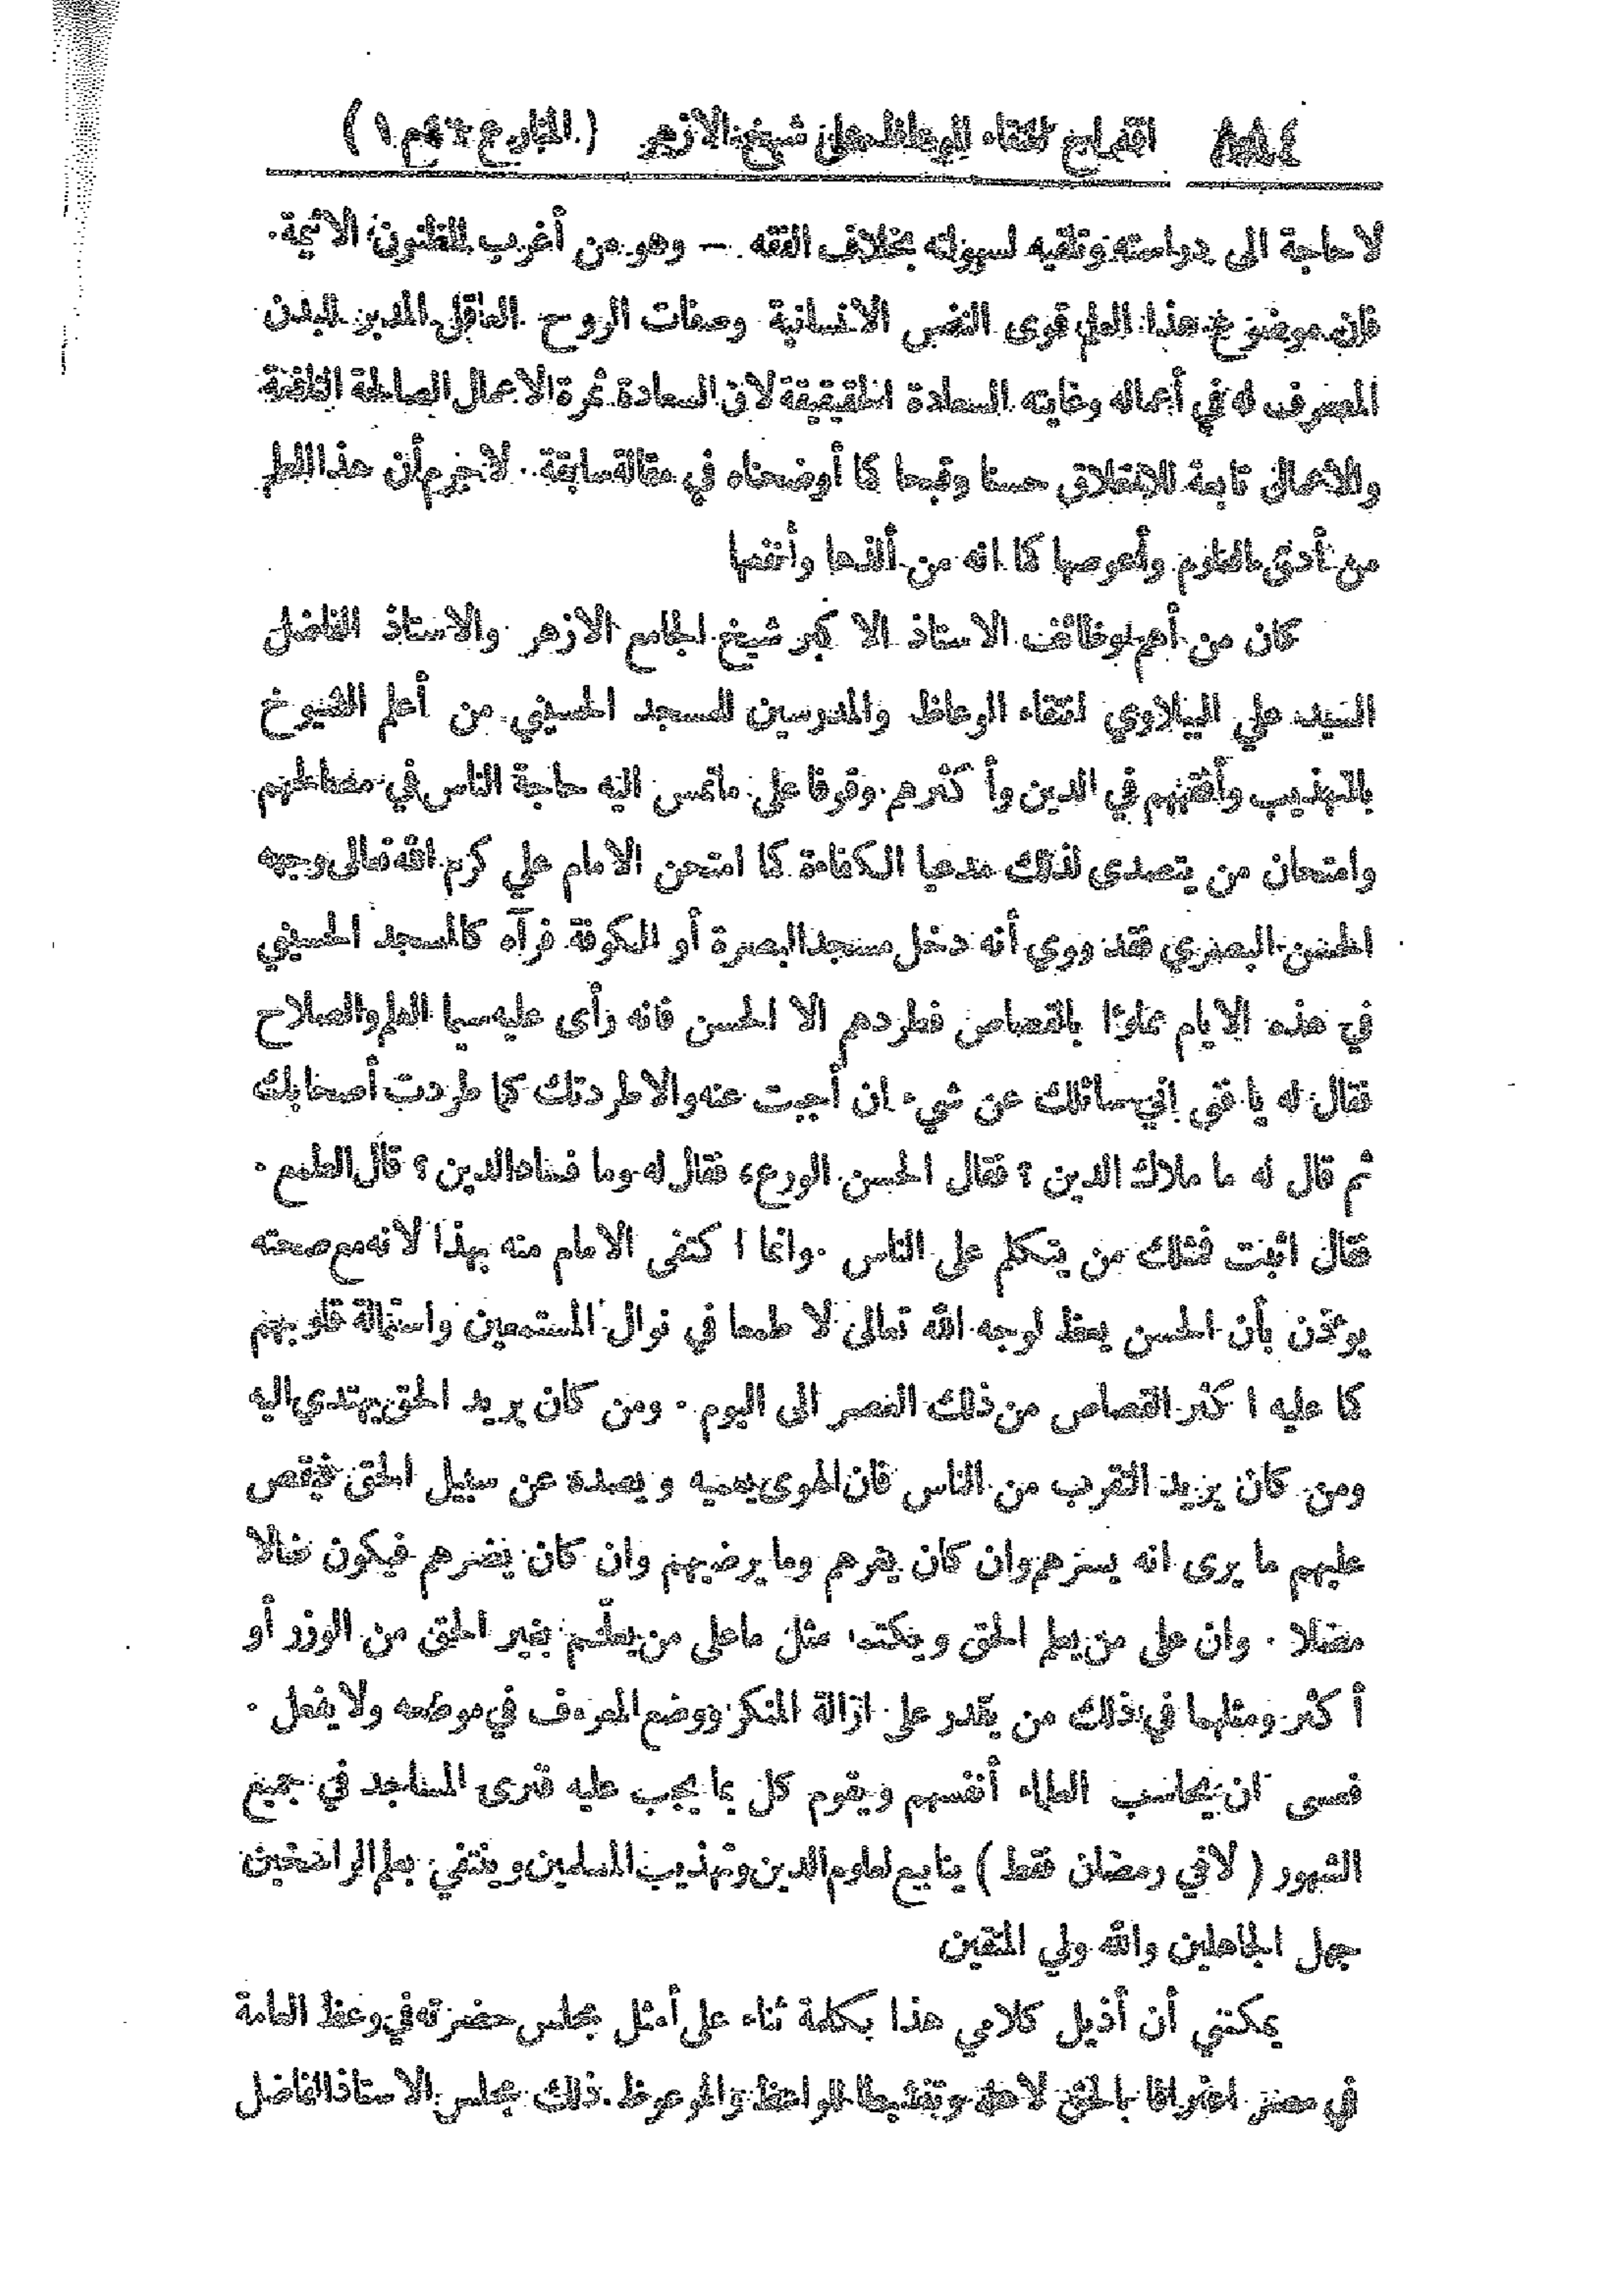 ٨٨٤ اقتراح انتقاء الوعاظ على شيخ الازهر (المنار ع ٤٦ م ١)
لا حاجة الى دراسته وتلقيه لسهولته بخلاف الفقه – وهو من أغرب الظنون الآثمة.
فان موضوع هذا العلم قوى النفس الانسانية وصفات الروح العاقل المدبر للبدن
المصرف له في أعماله وغايته السعادة الحقيقية لان السعادة ثمرة الاعمال الصالحة النافعة
والاعمال تابعة للاخلاق حسنا وقبحا كما أوضحناه في مقالة سابقة. لاجرم أن هذا العلم
من أدق العلوم وأعوصها كما انه من ألذها وأنفعها
كان من أهم وظائف الاستاذ الا كبر شيخ الجامع الازهر والاستاذ الفاضل
السيد علي الببلاوي انتقاء الوعاظ والمدرسين للمسجد الحسيني من أعلم الشيوخ
بالتهذيب وأفقههم في الدين وأ كثرهم وقوفا على ماتمس اليه حاجة الناس في مصالحهم
وامتحان من يتصدى لذلك مدعيا الكفاءة كما امتحن الامام علي كرم الله تعالى وجهه
الحسن البصري فقد روي أنه دخل مسجد البصرة أو الكوفة فرآه كالمسجد الحسيني
في هذه الايام مملوءا بالقصاص فطردهم الا الحسن فانه رأى عليه سيما العلم والصلاح
فقال له يا فتى إني سائلك عن شيء ان أجبت عنه والا طردتك كما طردت أصحابك
ثم قال له ما ملاك الدين ؟ فقال الحسن الورع، فقال له وما فساد الدين ؟ قال الطمع .
فقال اثبت فمثلك من يتكلم على الناس . وانما ا كتفى الامام منه بهذا لانه مع صحته
يؤذن بأن الحسن يعظ لوجه الله تعالى لا طمعا في نوال المستمعين واستمالة قلوبهم
كما عليه ا كثر القصاص من ذلك العصر الى اليوم . ومن كان يريد الحق يهتدي اليه
ومن كان يريد التقرب من الناس فان الهوى يعميه ويصده عن سبيل الحق فيقص
عليهم ما يرى انه يسرهم وان كان يغرهم وما يرضيهم وان كان يضرهم فيكون ضالا
مضلا . وان على من يعلم الحق ويكتمه مثل ماعلى من يعلّم بغير الحق من الوزر أو
أ كثر ومثلهما في ذلك من يقدر على ازالة المنكر ووضع المعروف في موضعه ولا يفعل .
فعسى ان يحاسب العلماء أنفسهم ويقوم كل بما يجب عليه فترى المساجد في جميع
الشهور ( لا في رمضان فقط ) ينابيع لعلوم الدين وتهذيب المسلمين وينتفي بعلم الراسخين
جهل الجاهلين والله ولي المتقين
يمكنني أن أذيل كلامي هذا بكلمة ثناء على أمثل مجلس حضرته في وعظ العامة
في مصر اعترافا بالحق لاهله وتنشيطا للواعظ والموعوظ. ذلك مجلس الاستاذ الفاضل